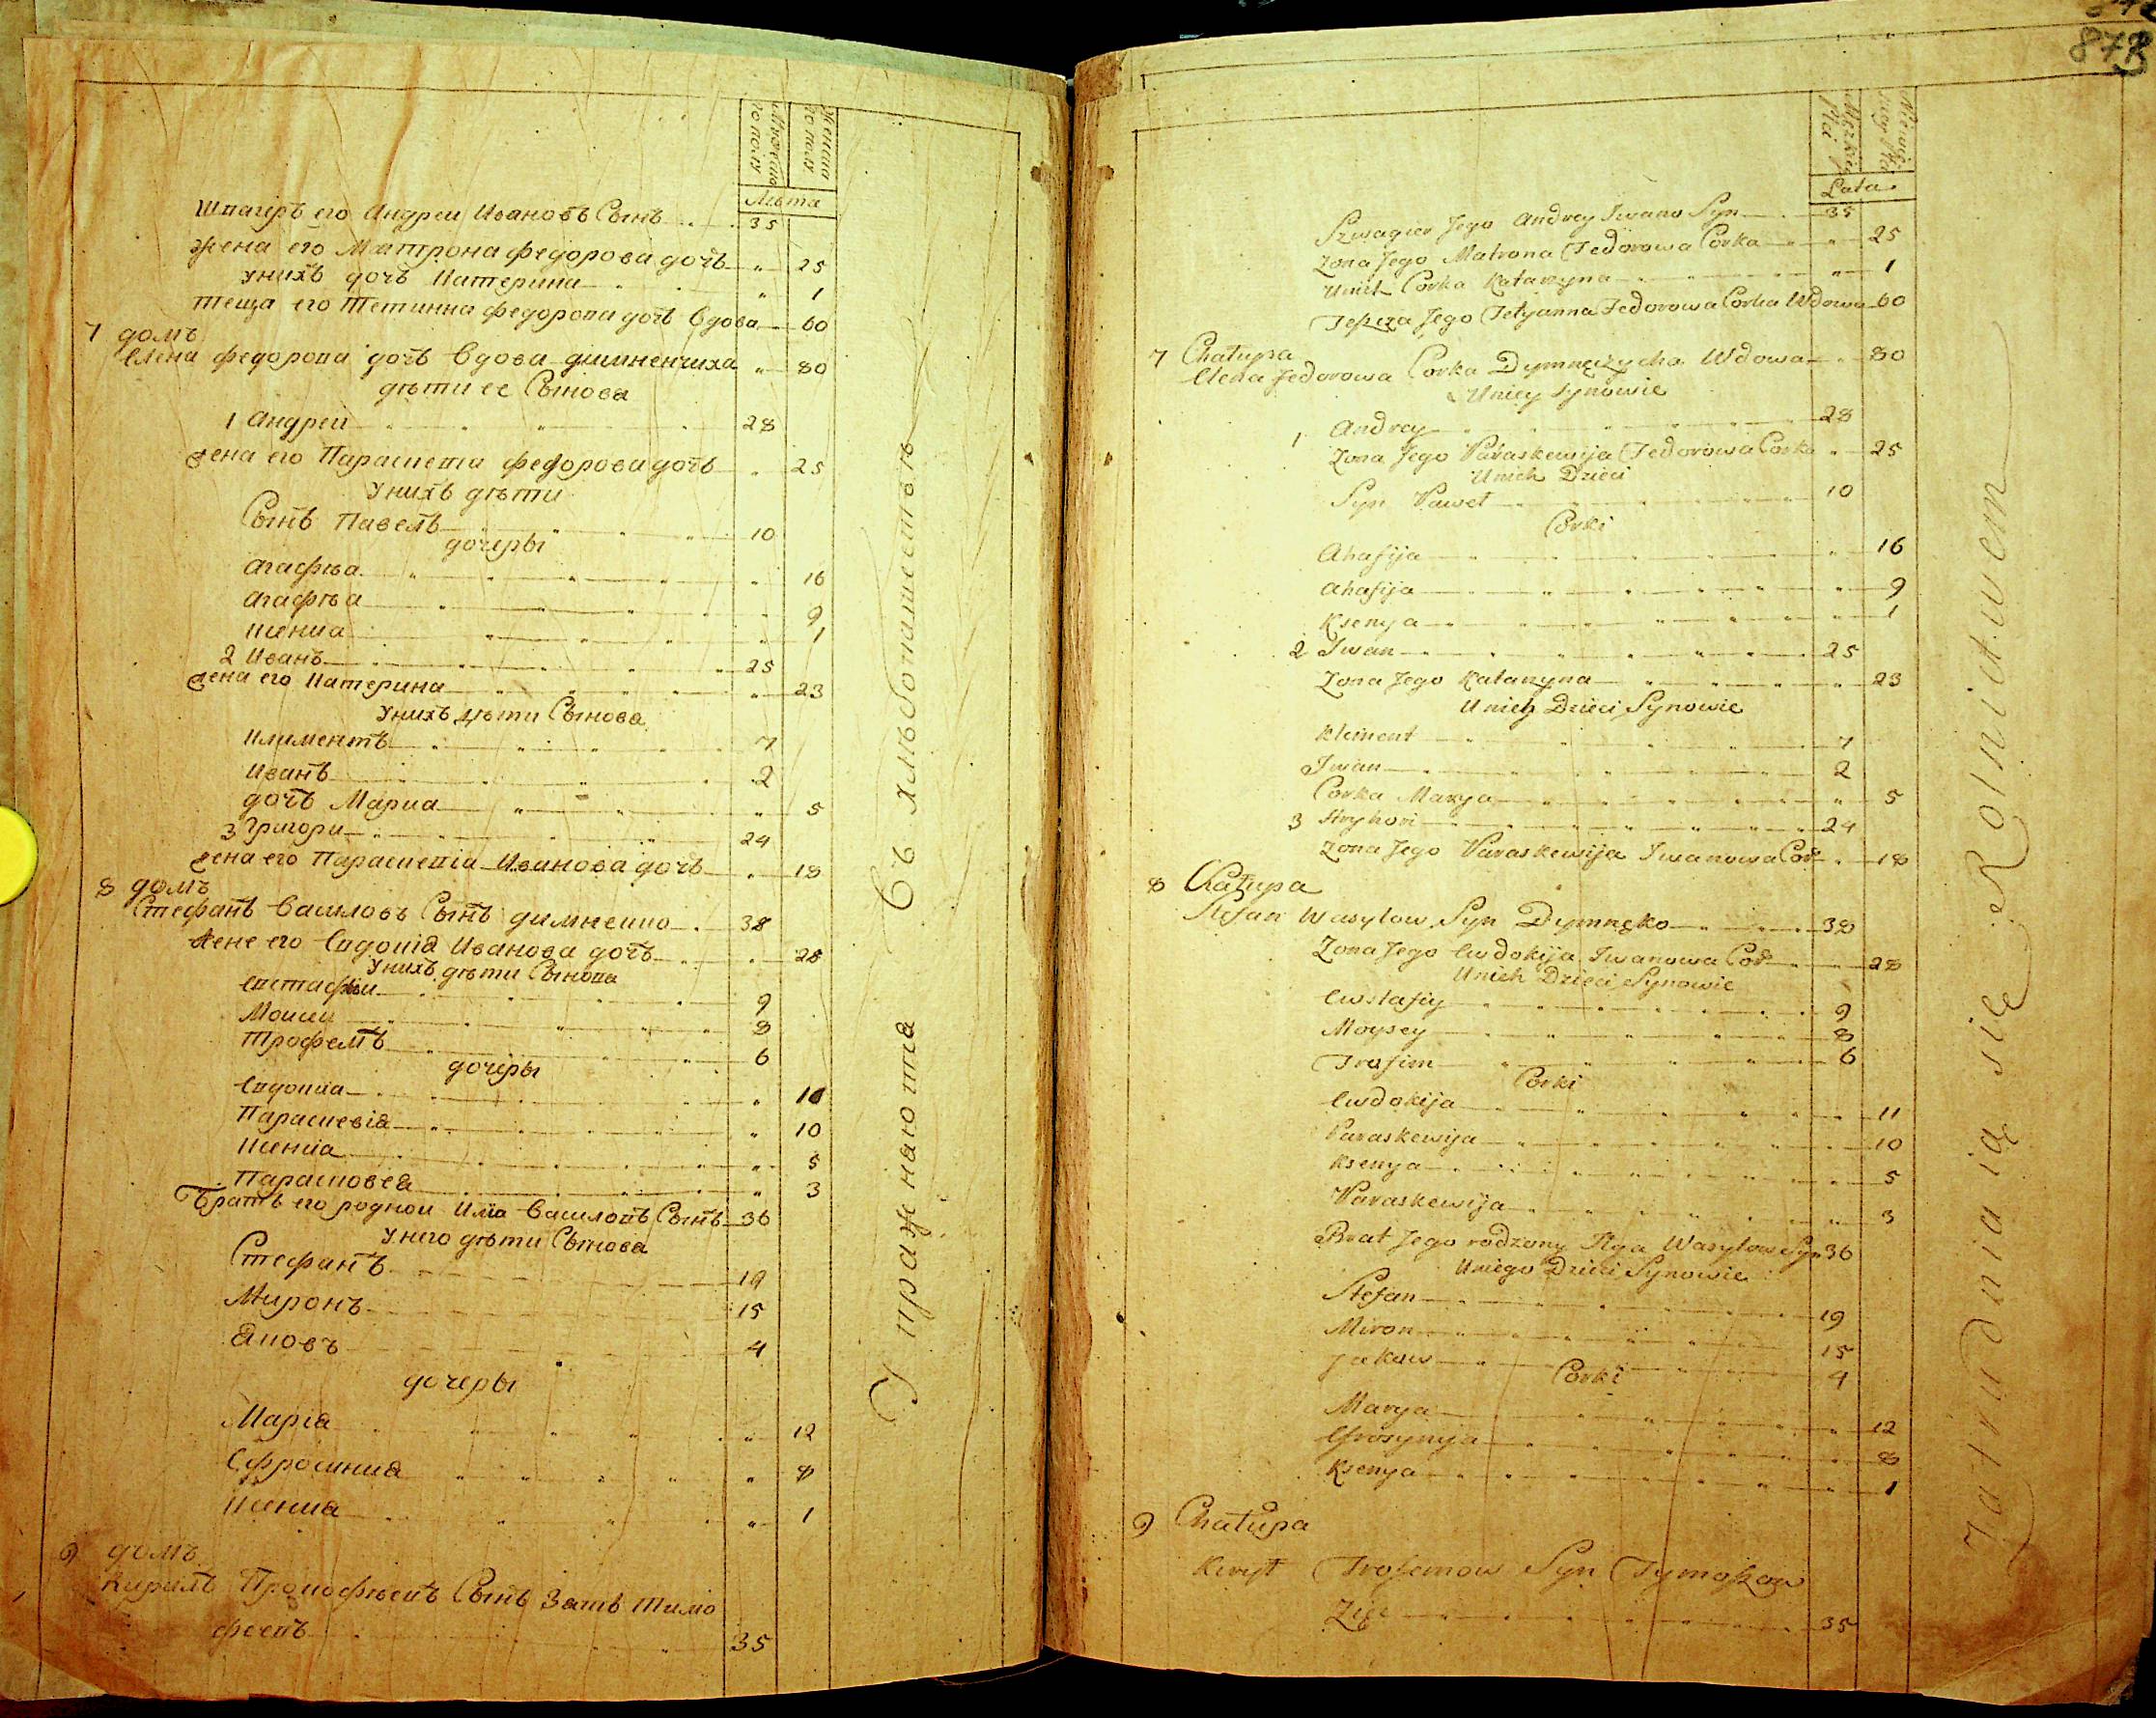 Мужеска го полу
Женска го полу
Лѣта
Шпагiръ его Андреи Ивановъ Сынъ 35
жена его Матрона федорова дочъ 25
унихъ дочъ Катерина 1
теща его Тетиянна федорова дочъ Вдова 60
7 домъ
Елена федорова дочъ Вдова димненчиха 80
дѣти ее Сынова
1 Андреи 28
жена его Параскева федорова дочъ 25
Унихъ дѣти
Сынъ Павелъ 10
дочеры
Агафѣа 16
Агафѣа 9
Ксениа 1
2 Иванъ 25
жена его Катерина 23
Унихъ дѣти Сынова
Климентъ 7
Иванъ 2
дочъ Мариа 5
3 Григори 24
жена его Параскевiа Иванова дочъ 18
8 домъ
Стефанъ Василовъ Сынъ димненко 38
жене его Евдокiя Иванова дочъ 28
Унихъ дѣти Сынова
Евстафiи 9
Моисеи 8
Трофемъ 6
дочеры
Евдокиа 11
Параскевiя 10
Ксениа 5
Парасковея 3
Братъ его роднои Илiа Василовъ Сынъ 36
Унего дѣти Сынова
Стефанъ 19
Миронъ 15
Яковъ 4
дочеры
Марiя 12
Ефросиния 8
Ксения 1
9 домъ
Кирилъ Прокофѣевъ Сынъ Затъ Тимо
феевъ 35
Упражнаютя Съ хлѣбопашествъ
873
Męzkiey Płci
Niewieściey Płci
Lata
Szwagier Jego Andrey Iwano Syn 35
Zona Jego Matrona Fedorowa Corka 25
Unich Corka Katarzyna 1
Teszcza Jego Tetyanna Fedorowa Corka Wdowa 60
7 Chałupa
Elena Fedorowa Corka Dymnęczycha Wdowa 80
Uniey Synowie
1 Andrey 28
Zona Jego Paraskewija Fedorowa Corka 25
Unich Dzieci
Syn Paweł 10
Corki
Ahafija 16
Ahafija 9
Ksenya 1
2 Iwan 25
Zona Jego Katarzyna 23
Unich Dzieci Synowie
Kliment 7
Iwan 2
Corka Marya 5
3 Hryhori 24
Zona Jego Paraskewija Iwanowa Cor 18
8 Chałupa
Stefan Wasylow Syn Dymnęko 38
Zona Jego Ewdokija Iwanowa Cor 28
Unich Dzieci Synowie
Ewstafiy 9
Moysey 8
Trofim 6
Corki
Ewdokija 11
Paraskewija 10
Ksenya 5
Paraskewija 3
Brat Jego rodzony Ilya Wasylow Syn 36
Uniego Dzieci Synowie
Stefan 19
Miron 15
Jakow 4
Corki
Marya 12
Efrosynya 8
Ksenya 1
9 Chałupa
Kirył Trofemow Syn Tymoszow
Zięć 35
Zatrudniaią się Rolnictwem